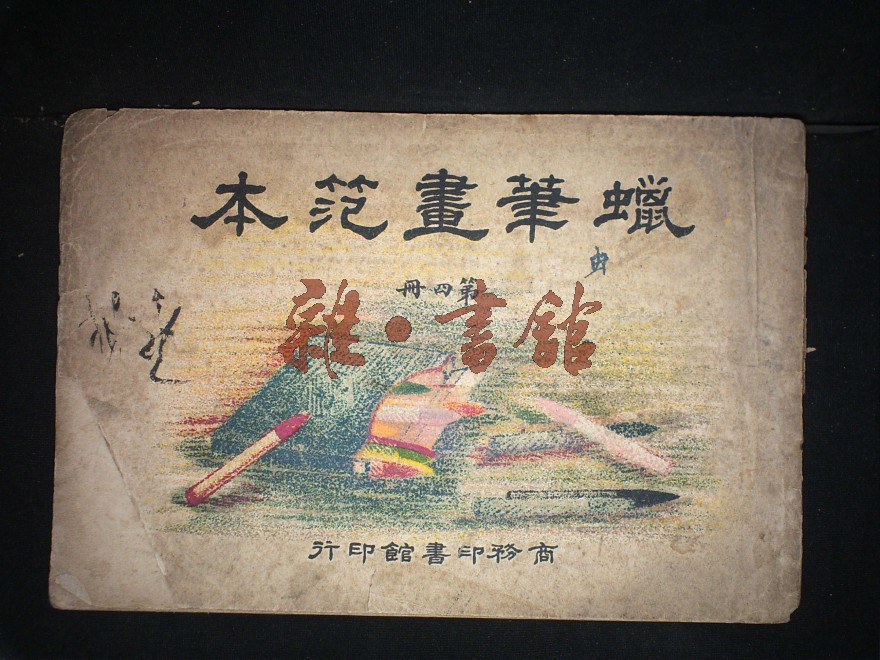 蠟筆畫范本
第四冊
雜·書館
商務印書館印行